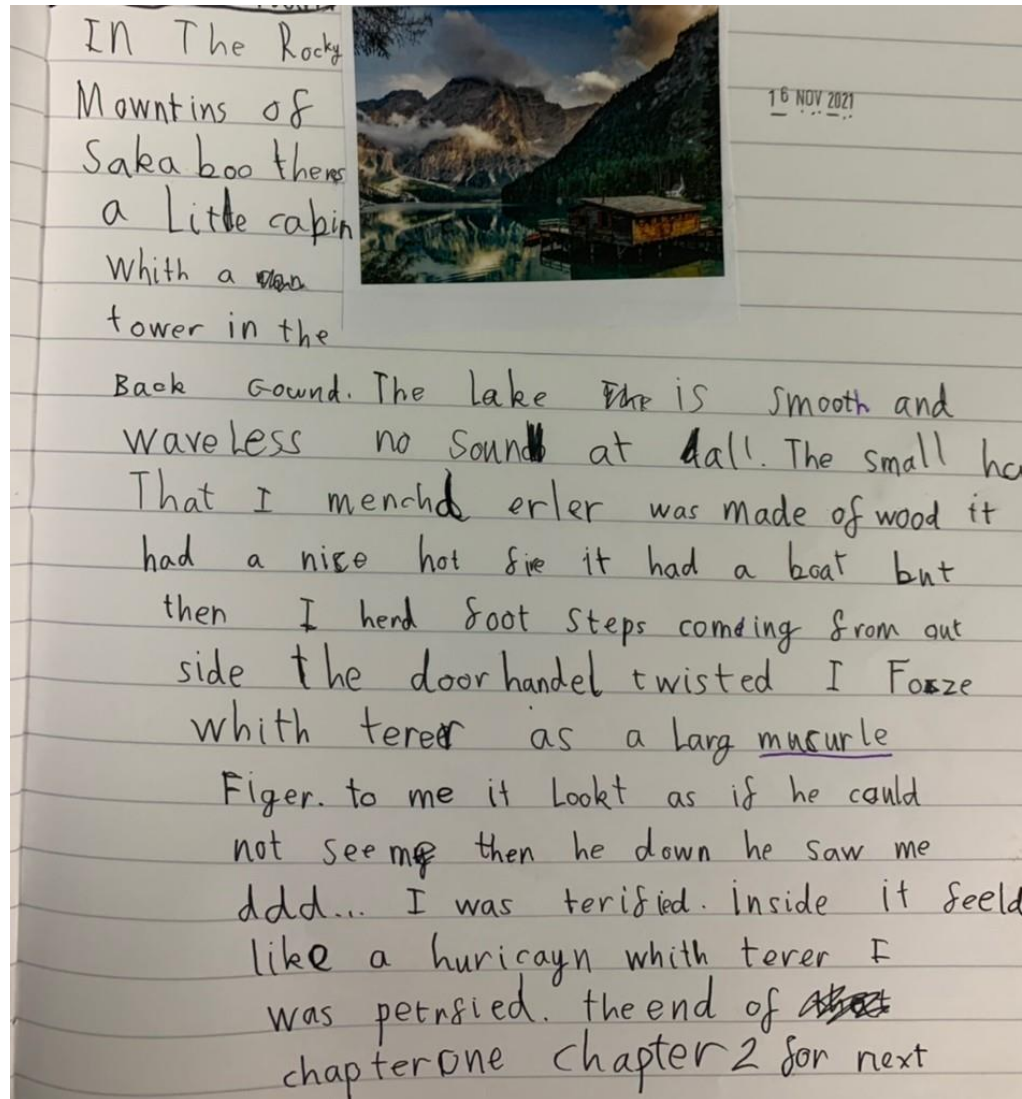 In The Rocky
16 NOV 2021
Mowntins of
Sakaboo theres
a Little cabin
Whith a
tower in the
Back Gownd. The Lake is smooth and
waveless no sound at all. The small
That I menchd erler was made of wood it
had a nice hot fire it had a boat but
then I herd foot steps comeing from out
side the door handel twisted I Forze
whith terer as a Larg mucurle
Figer. to me it Lookt as if he could
not see me then he down he saw me
ddd... I was terified. inside it feeld
like a huricayn whith terer I
was petrified. the end of
chapter one chapter 2 for next